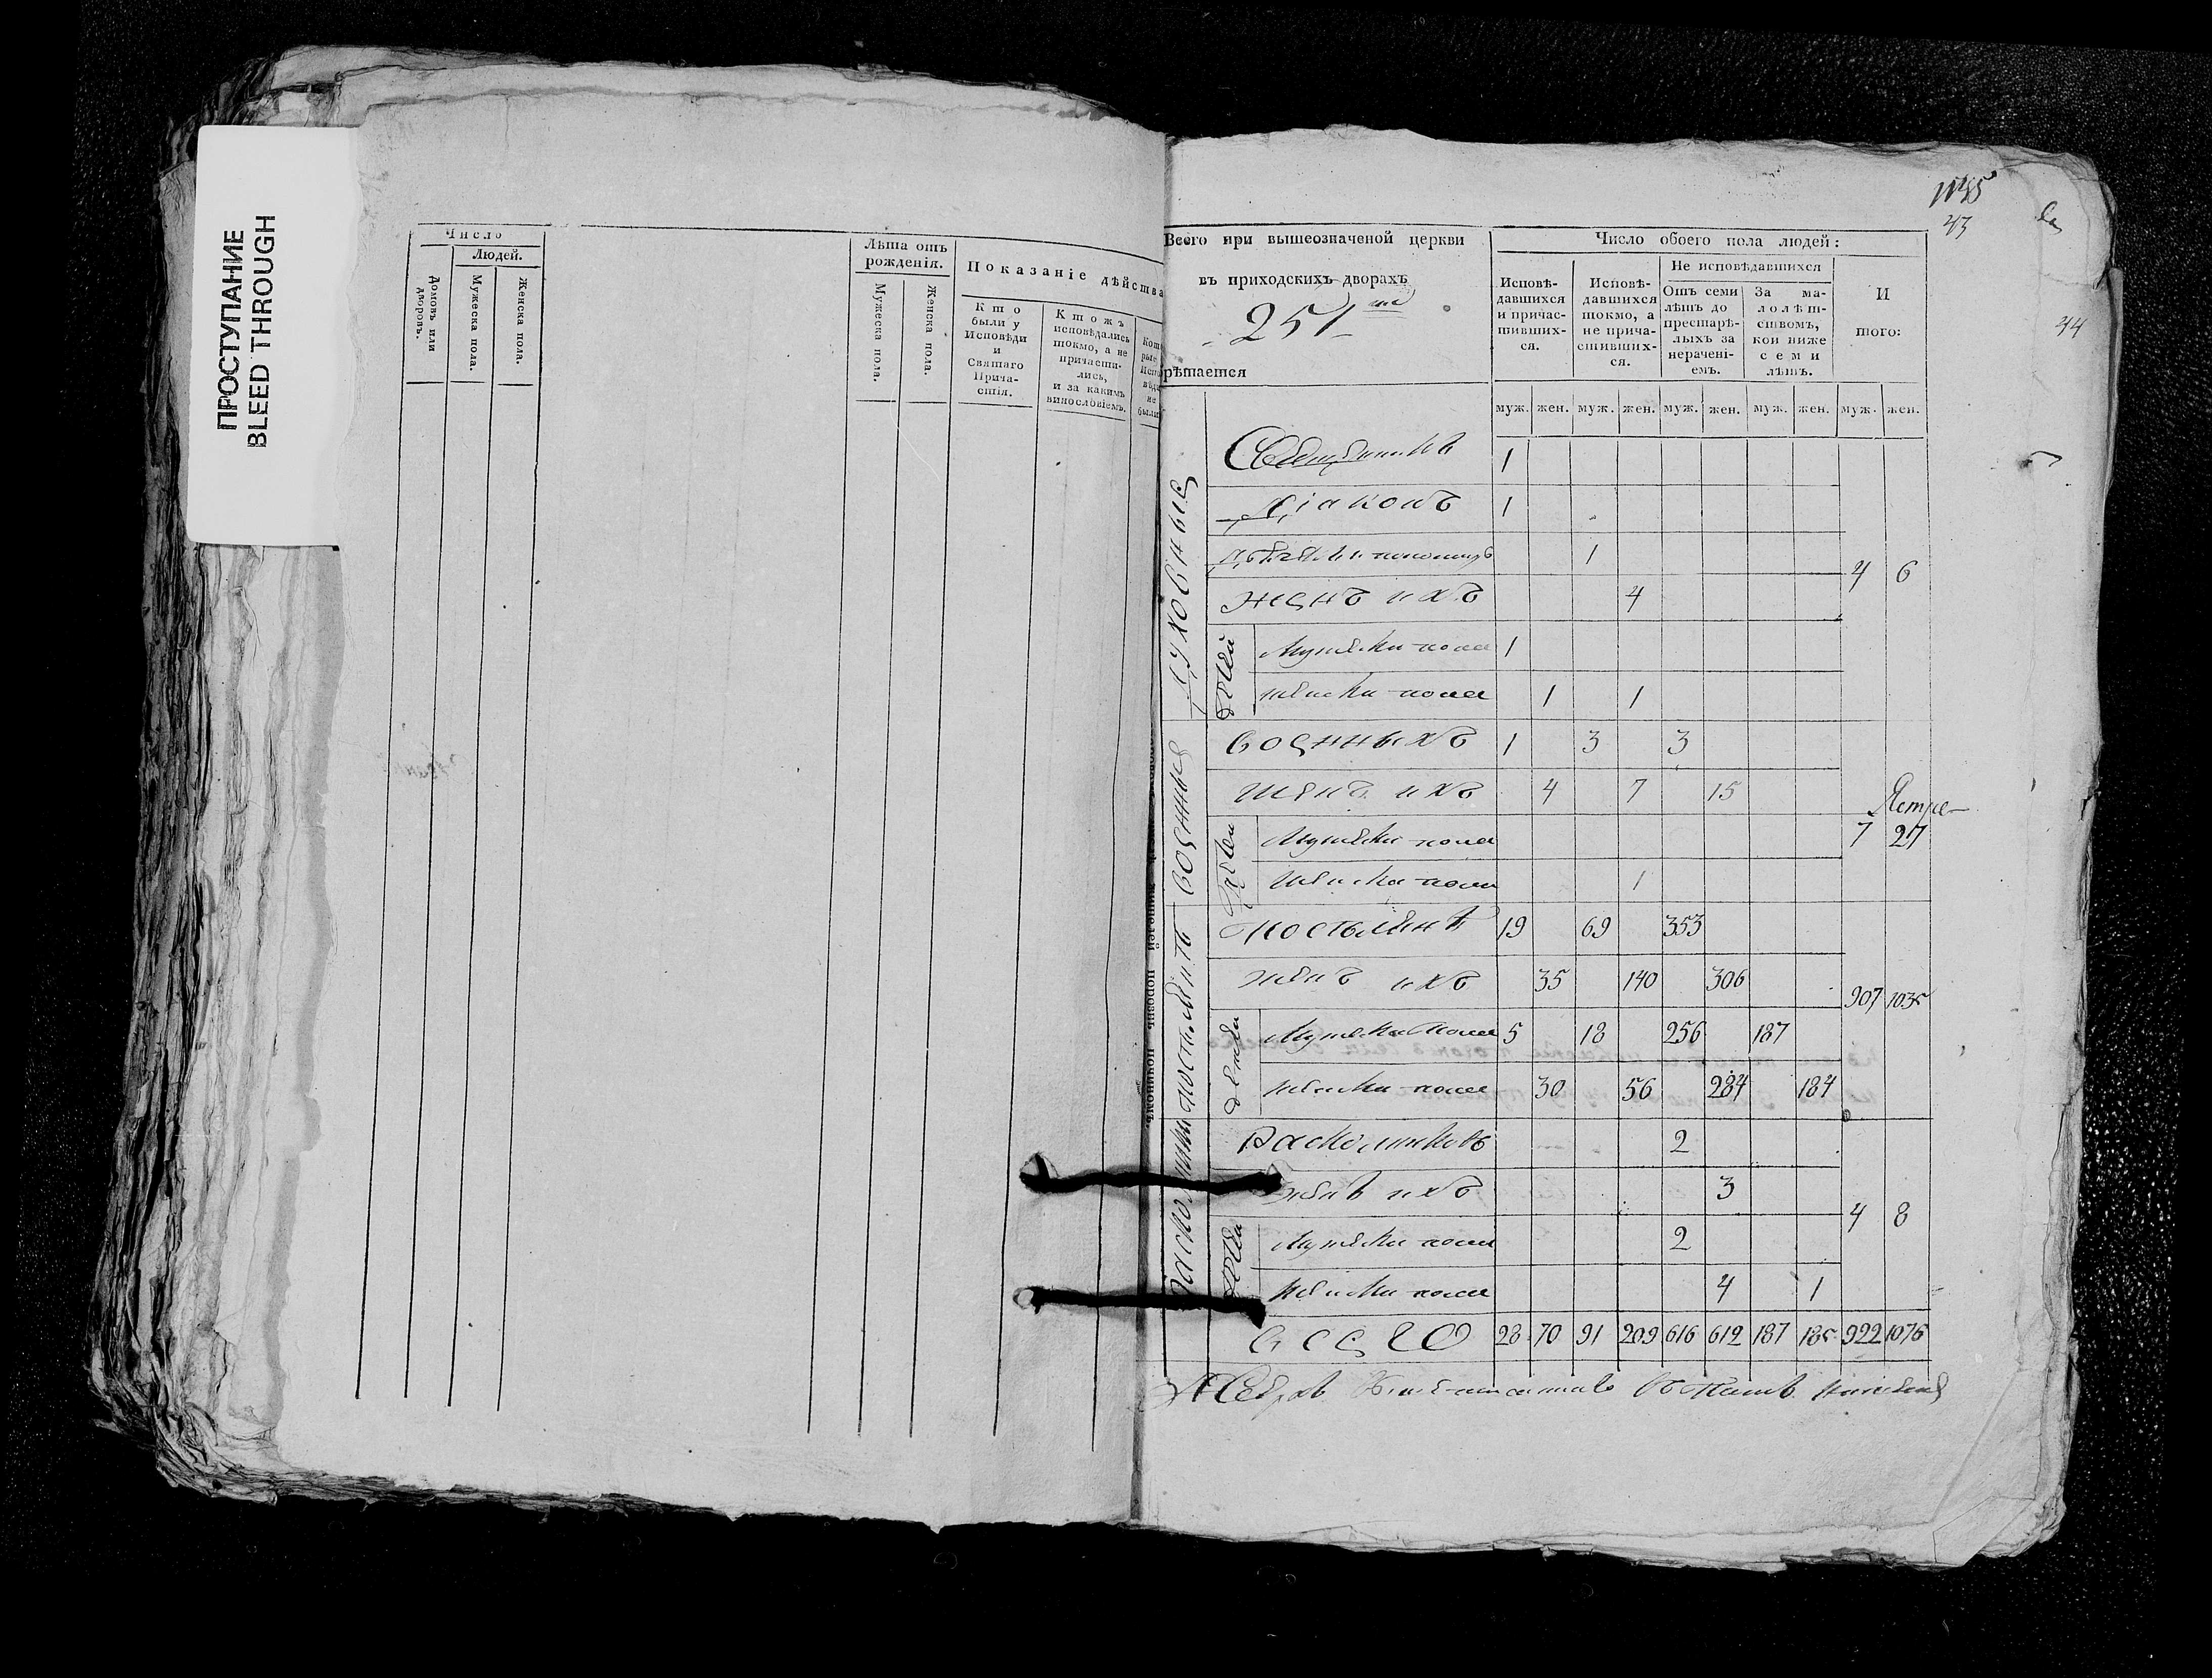 ПРОСТУПАНИЕ
BLEED THROUGH
Число
Людей.
Домовъ или дворовъ.
Мужеска пола.
Женска пола.
Лѣта отъ
рожденія.
Мужеска пола.
Женска пола.
Показаніе дѣйства
Кто
были у
Исповѣди
и
Святаго
Прича-
стія.
Ктожъ
исповѣдались
токмо, а не
причасти-
лись,
и за какимъ
винословіемъ.
не
были
43
44
Всего при вышеозначеной церкви
въ приходскихъ дворахъ
251
рѣтается
Число обоего пола людей:
Исповѣ-
давшихся
и причас-
тивших-
ся.
Исповѣ-
давшихся
токмо, а
не прича-
стивших-
ся.
Не исповѣдавшихся
Отъ семи
лѣтъ до
престарѣ-
лыхъ за
нерачені-
емъ.
За ма-
лолѣт-
ствомъ,
кои ниже
семи
лѣтъ.
И
того:
муж. жен. муж. жен. муж. жен. муж. жен. муж. жен.
Духовныя
Священниковъ 1
Діаконъ 1
1
женъ ихъ 4
4 6
детей
Мужеска пола 1
женска пола 1 1
Военныя
Военныхъ 1 3 3
женъ ихъ 4 7 15
7 27
детей
Мужеска пола
женска пола 1
19 69 353
женъ ихъ 35 140 306
907 1035
детей
Мужеска пола 5 18 256 187
женска пола 30 56 284 184
Раскольниковъ 2
женъ ихъ 3
4 8
детей
Мужеска пола 2
женска пола 4 1
Всего 28 70 91 209 616 612 187 185 922 1076